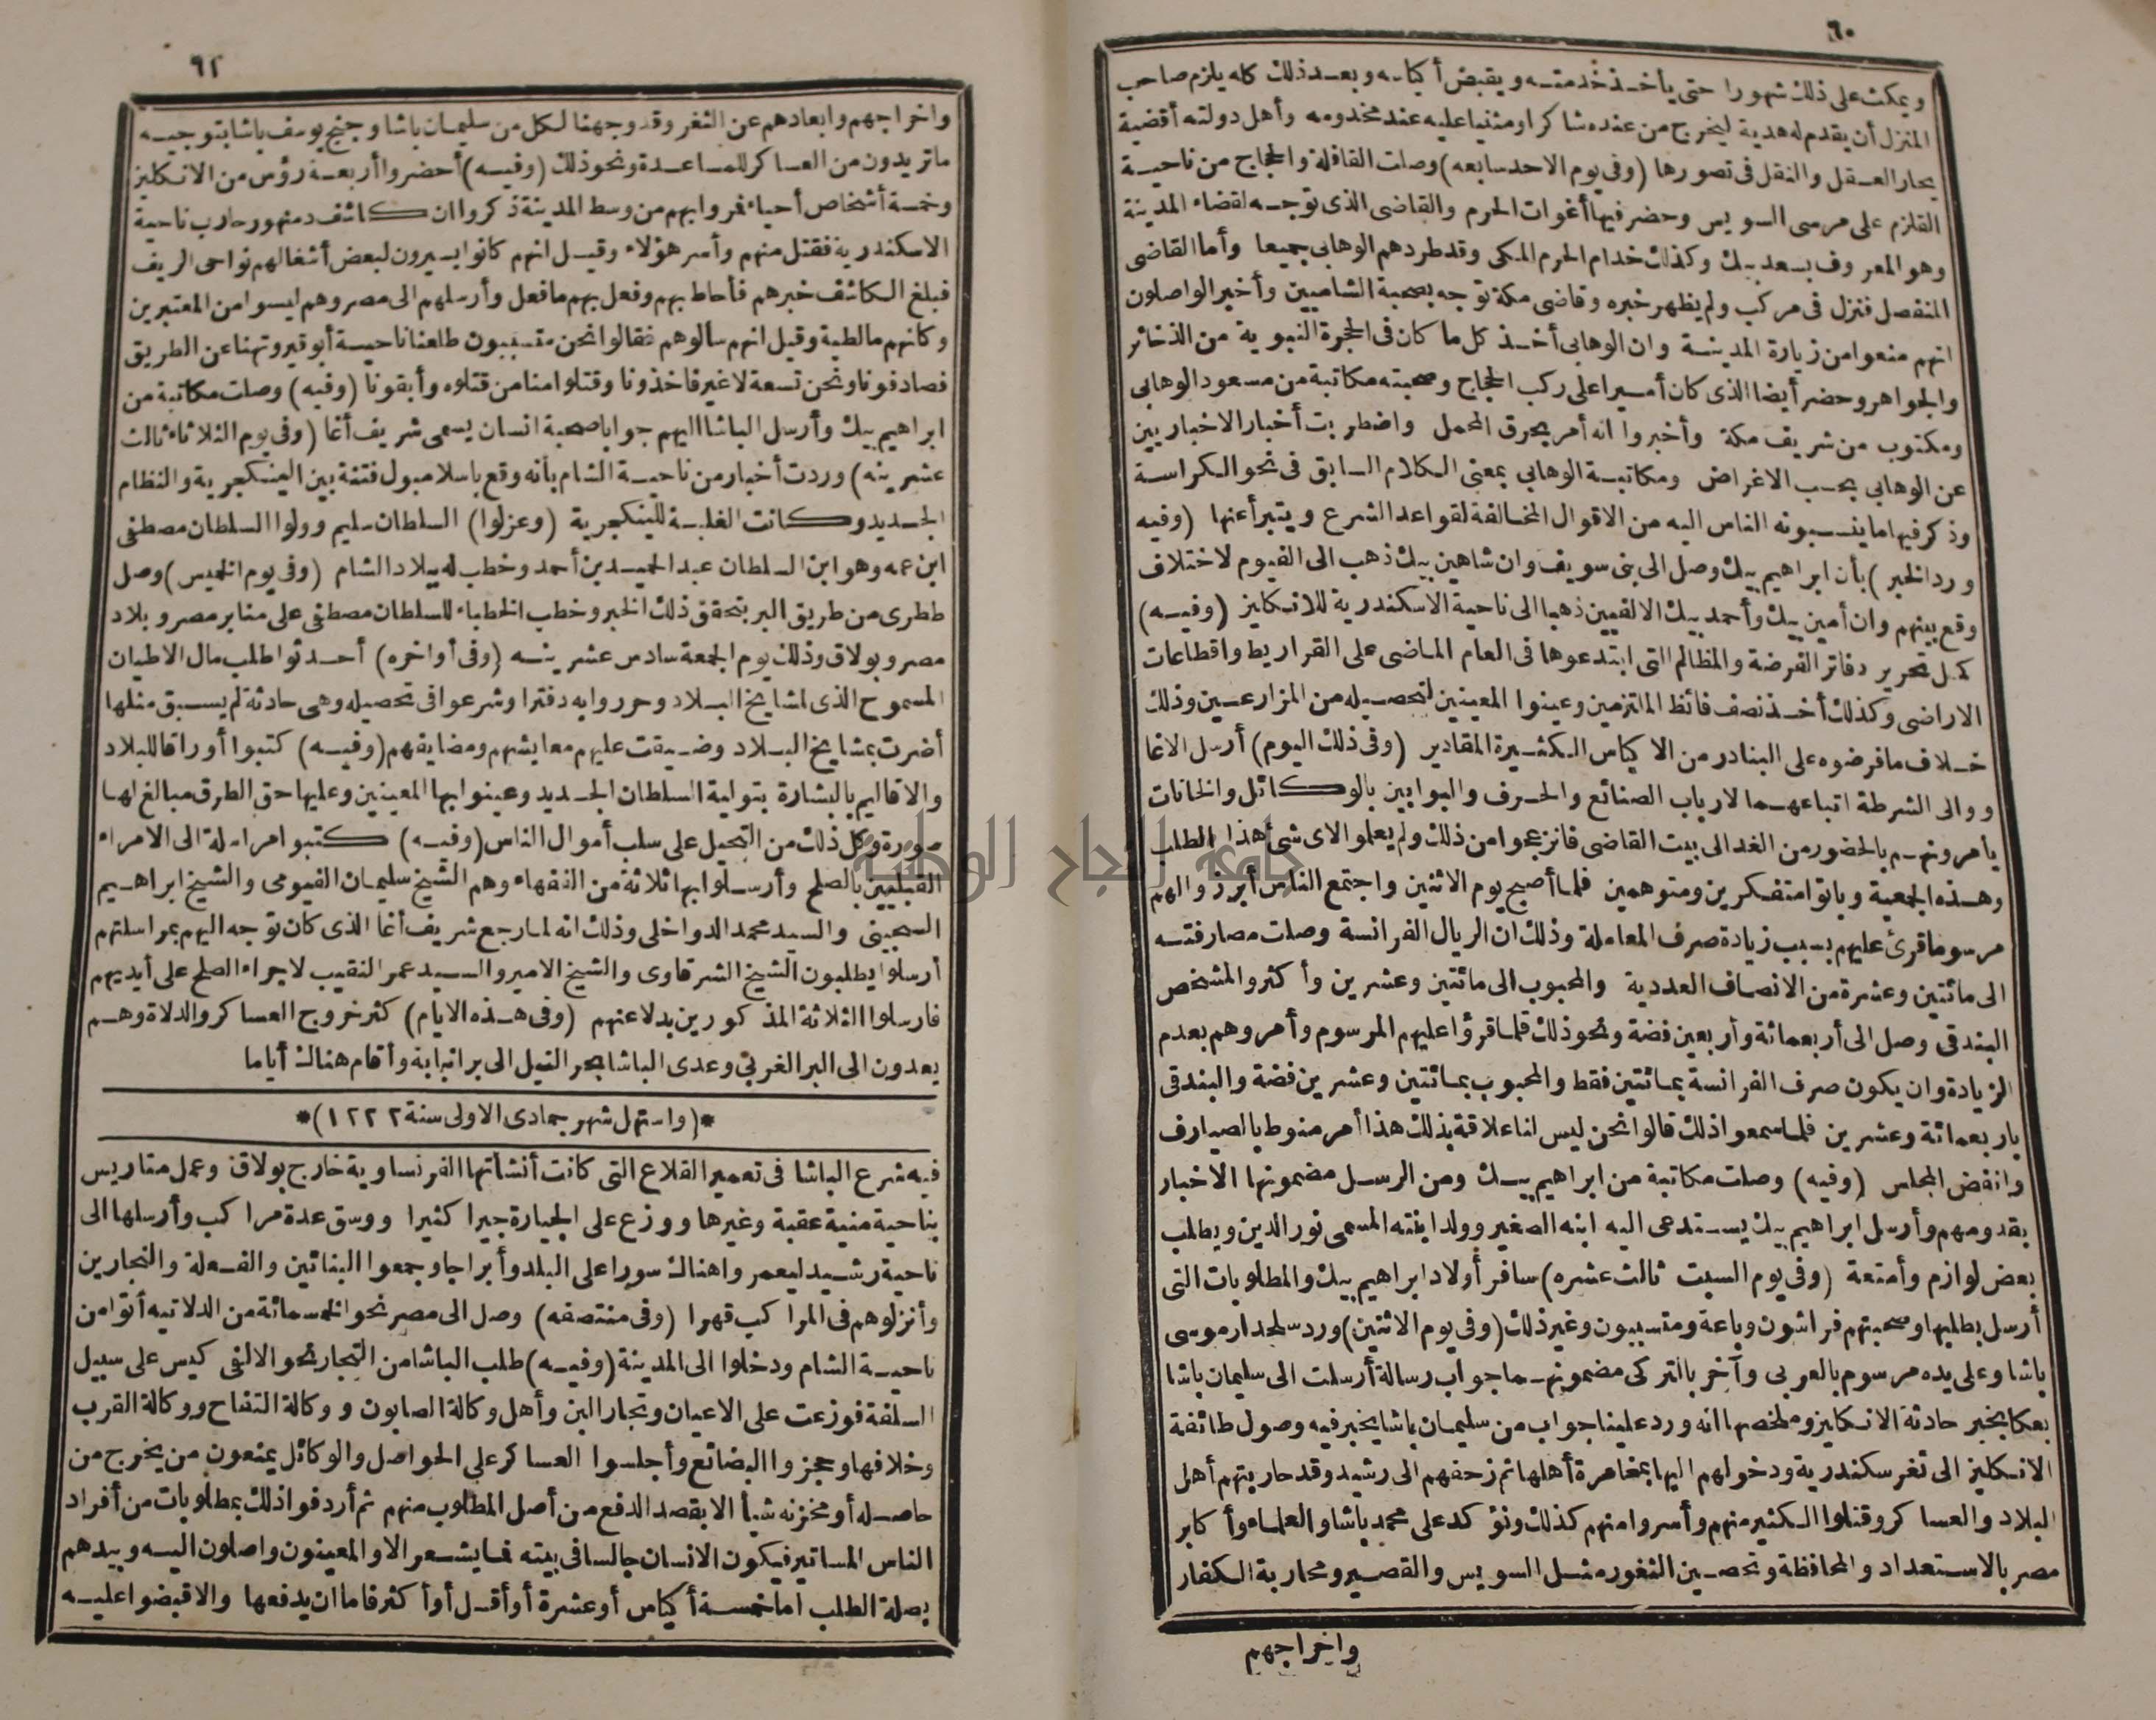 ٦٠
ويمكث على ذلك شهورا حتى يأخذ خدمته ويقبض أكياسه وبعد ذلك كله يلزم صاحب
المنزل أن يقدم له هدية ليخرج من عنده شاكرا ومثنيا عليه عند مخدومه وأهل دولته أقضية
يحار العقل والنقل فى تصورها (وفى يوم الاحد سابعه) وصلت القافلة والحجاج من ناحية
القلزم على مرسى السويس وحضر فيها أغوات الحرم والقاضى الذى توجه لقضاء المدينة
وهو المعروف بسعد بيك وكذلك خدام الحرم المكى وقد طردهم الوهابى جميعا وأما القاضى
المنفصل فنزل فى مركب ولم يظهر خبره وقاضى مكة توجه بصحبة الشاميين وأخبر الواصلون
انهم منعوا من زيارة المدينة وان الوهابى أخذ كل ما كان فى الحجرة النبوية من الذخائر
والجواهر وحضر أيضا الذى كان أميرا على ركب الحجاج وصحبته مكاتبة من مسعود الوهابى
ومكتوب من شريف مكة وأخبروا انه أمر بحرق المحمل واضطربت أخبار الاخباريين
عن الوهابى بحسب الاغراض ومكاتبة الوهابى بمعنى الكلام السابق فى نحو الكراسة
وذكر فيها ما ينسبونه الناس اليه من الاقوال المخالفة لقواعد الشرع ويتبرأ عنها (وفيه
ورد الخبر) بأن ابراهيم بيك وصل الى بنى سويف وان شاهين بيك ذهب الى الفيوم لاختلاف
وقع بينهم وان أمين بيك وأحمد بيك الالفيين ذهبا الى ناحية الاسكندرية للانكليز (وفيه)
كمل تحرير دفاتر الفرضة والمظالم التى ابتدعوها فى العام الماضى على القراريط واقطاعات
الاراضى وكذلك أخذ نصف فائظ الملتزمين وعينوا المعينين لتحصيله من المزارعين وذلك
خلاف ما فرضوه على البنادر من الاكياس الكثيرة المقادير (وفى ذلك اليوم) أرسل الاغا
ووالى الشرطة اتباعهما لارباب الصنائع والحرف والبوابين بالوكائل والخانات
يأمرونهم بالحضور من الغد الى بيت القاضى فانزعجوا من ذلك ولم يعلموا لاى شئ هذا الطلب
وهذه الجمعية وباتوا متفكرين ومتوهمين فلما أصبح يوم الاثنين واجتمع الناس أبرزوا لهم
مرسوما قرئ عليهم بسبب زيادة صرف المعاملة وذلك ان الريال الفرانسة وصلت مصارفته
الى مائتين وعشرة من الانصاف العددية والمحبوب الى مائتين وعشرين وأكثر والمشخص
البندقى وصل الى أربعمائة وأربعين فضة ونحو ذلك فلما قرؤا عليهم المرسوم وأمروهم بعدم
الزيادة وان يكون صرف الفرانسة بمائتين فقط والمحبوب بمائتين وعشرين فضة والبندقى
باربعمائة وعشرين فلما سمعوا ذلك قالوا نحن ليس لنا علاقة بذلك هذا أمر منوط بالصيارف
وانفض المجلس (وفيه) وصلت مكاتبة من ابراهيم بيك ومن الرسل مضمونها الاخبار
بقدومهم وأرسل ابراهيم بيك يستدعى اليه ابنه الصغير وولد ابنته المسمى نور الدين ويطلب
بعض لوازم وأمتعة (وفى يوم السبت ثالث عشره) سافر أولاد ابراهيم بيك والمطلوبات التى
أرسل بطلبها وصحبتهم فراشون وباعة ومتسببون وغير ذلك (وفى يوم الاثنين) ورد سلحدار موسى
باشا وعلى يده مرسوم بالعربى وآخر بالتركى مضمونهما جواب رسالة أرسلت الى سليمان باشا
بعكا بخبر حادثة الانكليز وملخصها انه ورد علينا جواب من سليمان باشا يخبر فيه وصول طائفة
الانكليز الى ثغر سكندرية ودخولهم اليها بمخامرة أهلها ثم زحفهم الى رشيد وقد حاربتهم أهل
البلاد والعساكر وقتلوا الكثير منهم وأسروا منهم كذلك ونؤكد على محمد باشا والعلماء وأكابر
مصر بالاستعداد والمحافظة وتحصين الثغور مثل السويس والقصير ومحاربة الكفار
واخراجهم
٩٢
واخراجهم وابعادهم عن الثغر وقد وجهنا لكل من سليمان باشا وجنج يوسف باشا بتوجيه
ما تريدون من العساكر للمساعدة ونحو ذلك (وفيه) أحضروا أربعة رؤس من الانكليز
وخمسة أشخاص أحياء فمروا بهم من وسط المدينة ذكروا ان كاشف دمنهور حارب ناحية
الاسكندرية فقتل منهم وأسر هؤلاء وقيل انهم كانوا يسيرون لبعض أشغالهم نواحى الريف
فبلغ الكاشف خبرهم فأحاط بهم وفعل بهم ما فعل وأرسلهم الى مصر وهم ليسوا من المعتبرين
وكانهم مالطية وقيل انهم سألوهم فقالوا نحن متسببون طلعنا ناحية أبو قير وتهنا عن الطريق
فصادفونا ونحن تسعة لا غير فاخذونا وقتلوا منا من قتلوه وأبقونا (وفيه) وصلت مكاتبة من
ابراهيم بيك وأرسل الباشا اليهم جوابا صحبة انسان يسمى شريف أغا (وفى يوم الثلاثاء ثالث
عشرينه) وردت أخبار من ناحية الشام بأنه وقع باسلامبول فتنة بين الينكجرية والنظام
الجديد وكانت الغلبة للينكجرية (وعزلوا) السلطان سليم وولوا السلطان مصطفى
ابن عمه وهو ابن السلطان عبد الحميد بن أحمد وخطب له ببلاد الشام (وفى يوم الخميس) وصل
ططرى من طريق البر بتحقق ذلك الخبر وخطب الخطباء للسلطان مصطفى على منابر مصر وبلاد
مصر وبولاق وذلك يوم الجمعة سادس عشرينه (وفى أواخره) أحدثوا طلب مال الاطيان
المسموح الذى لمشايخ البلاد وحرروا به دفترا وشرعوا فى تحصيله وهى حادثة لم يسبق مثلها
أضرت بمشايخ البلاد وضيقت عليهم معايشهم ومضايفهم (وفيه) كتبوا أوراقا للبلاد
والاقاليم بالبشارة بتولية السلطان الجديد وعينوا بها المعينين وعليها حق الطرق مبالغ لها
صورة وكل ذلك من التحيل على سلب أموال الناس (وفيه) كتبوا مراسلة الى الامراء
القبليين بالصلح وأرسلوا بها ثلاثة من الفقهاء وهم الشيخ سليمان الفيومى والشيخ ابراهيم
السجينى والسيد محمد الدواخلى وذلك انه لما رجع شريف أغا الذى كان توجه اليهم بمراسلتهم
أرسلوا يطلبون الشيخ الشرقاوى والشيخ الامير والسيد عمر النقيب لاجراء الصلح على أيديهم
فارسلوا الثلاثة المذكورين بدلا عنهم (وفى هذه الايام) كثر خروج العساكر والدلاة وهم
يعدون الى البر الغربى وعدى الباشا بحر النيل الى بر انبابة وأقام هناك أياما
*(واستهل شهر جمادى الاولى سنة ١٢٢٢)*
فيه شرع الباشا فى تعمير القلاع التى كانت أنشأتها الفرنساوية خارج بولاق وعمل متاريس
بناحية منية عقبة وغيرها ووزع على الجيارة جيرا كثيرا ووسق عدة مراكب وأرسلها الى
ناحية رشيد ليعمروا هناك سورا على البلد وأبراجا وجمعوا البنائين والفعلة والنجارين
وأنزلوهم فى المراكب قهرا (وفى منتصفه) وصل الى مصر نحو الخمسمائة من الدلاتيه أتوا من
ناحية الشام ودخلوا الى المدينة (وفيه) طلب الباشا من التجار نحو الالفى كيس على سبيل
السلفة فوزعت على الاعيان وتجار البن وأهل وكالة الصابون ووكالة التفاح ووكالة القرب
وخلافها وحجزوا البضائع وأجلسوا العساكر على الحواصل والوكائل يمنعون من يخرج من
حاصله أو مخزنه شيأ الا بقصد الدفع من أصل المطلوب منهم ثم أردفوا ذلك بمطلوبات من أفراد
الناس المساتير فيكون الانسان جالسا فى بيته فما يشعر الا والمعينون واصلون اليه وبيدهم
بصلة الطلب اما خمسة أكياس أو عشرة أو أقل أو أكثر فاما ان يدفعها والا قبضوا عليه
جامعة النجاح الوطنية